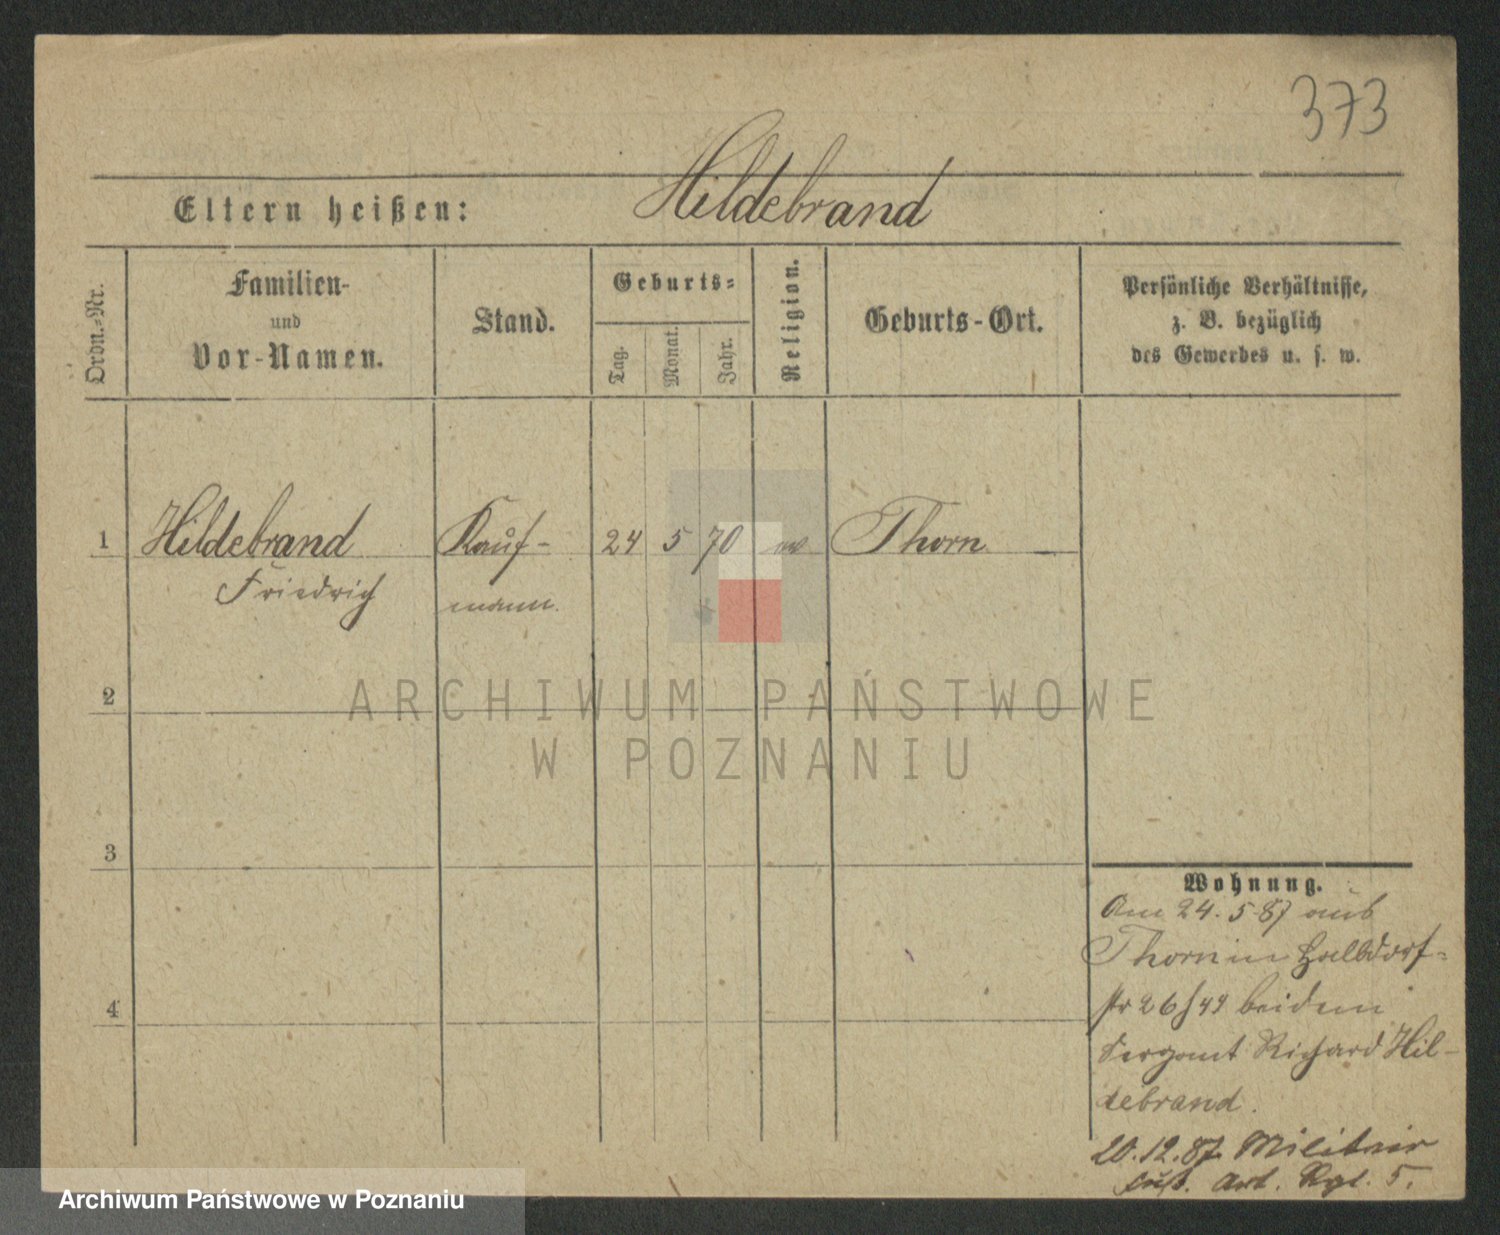 373
Eltern heißen: Hildebrand
Ordn.-Nr.
Familien-
und
Vor-Namen.
Stand.
Geburts-
Tag.
Monat.
Jahr.
Religion.
Geburts-Ort.
Persönliche Verhältnisse,
z. B. bezüglich
des Gewerbes u. s. w.
1 Hildebrand Kauf- 24 5 70 ev Thorn
Friedrich mann.
2
ARCHIWUM PAŃSTWOWE
W POZNANIU
3
4
Wohnung.
Am 24.5.87 aus
Thorn in Halbdorf-
str 26/49 bei dem
Sergant Richard Hil-
debrand.
20.12.87 Militair
Fuß. Art. Rgt. 5.
Archiwum Państwowe w Poznaniu